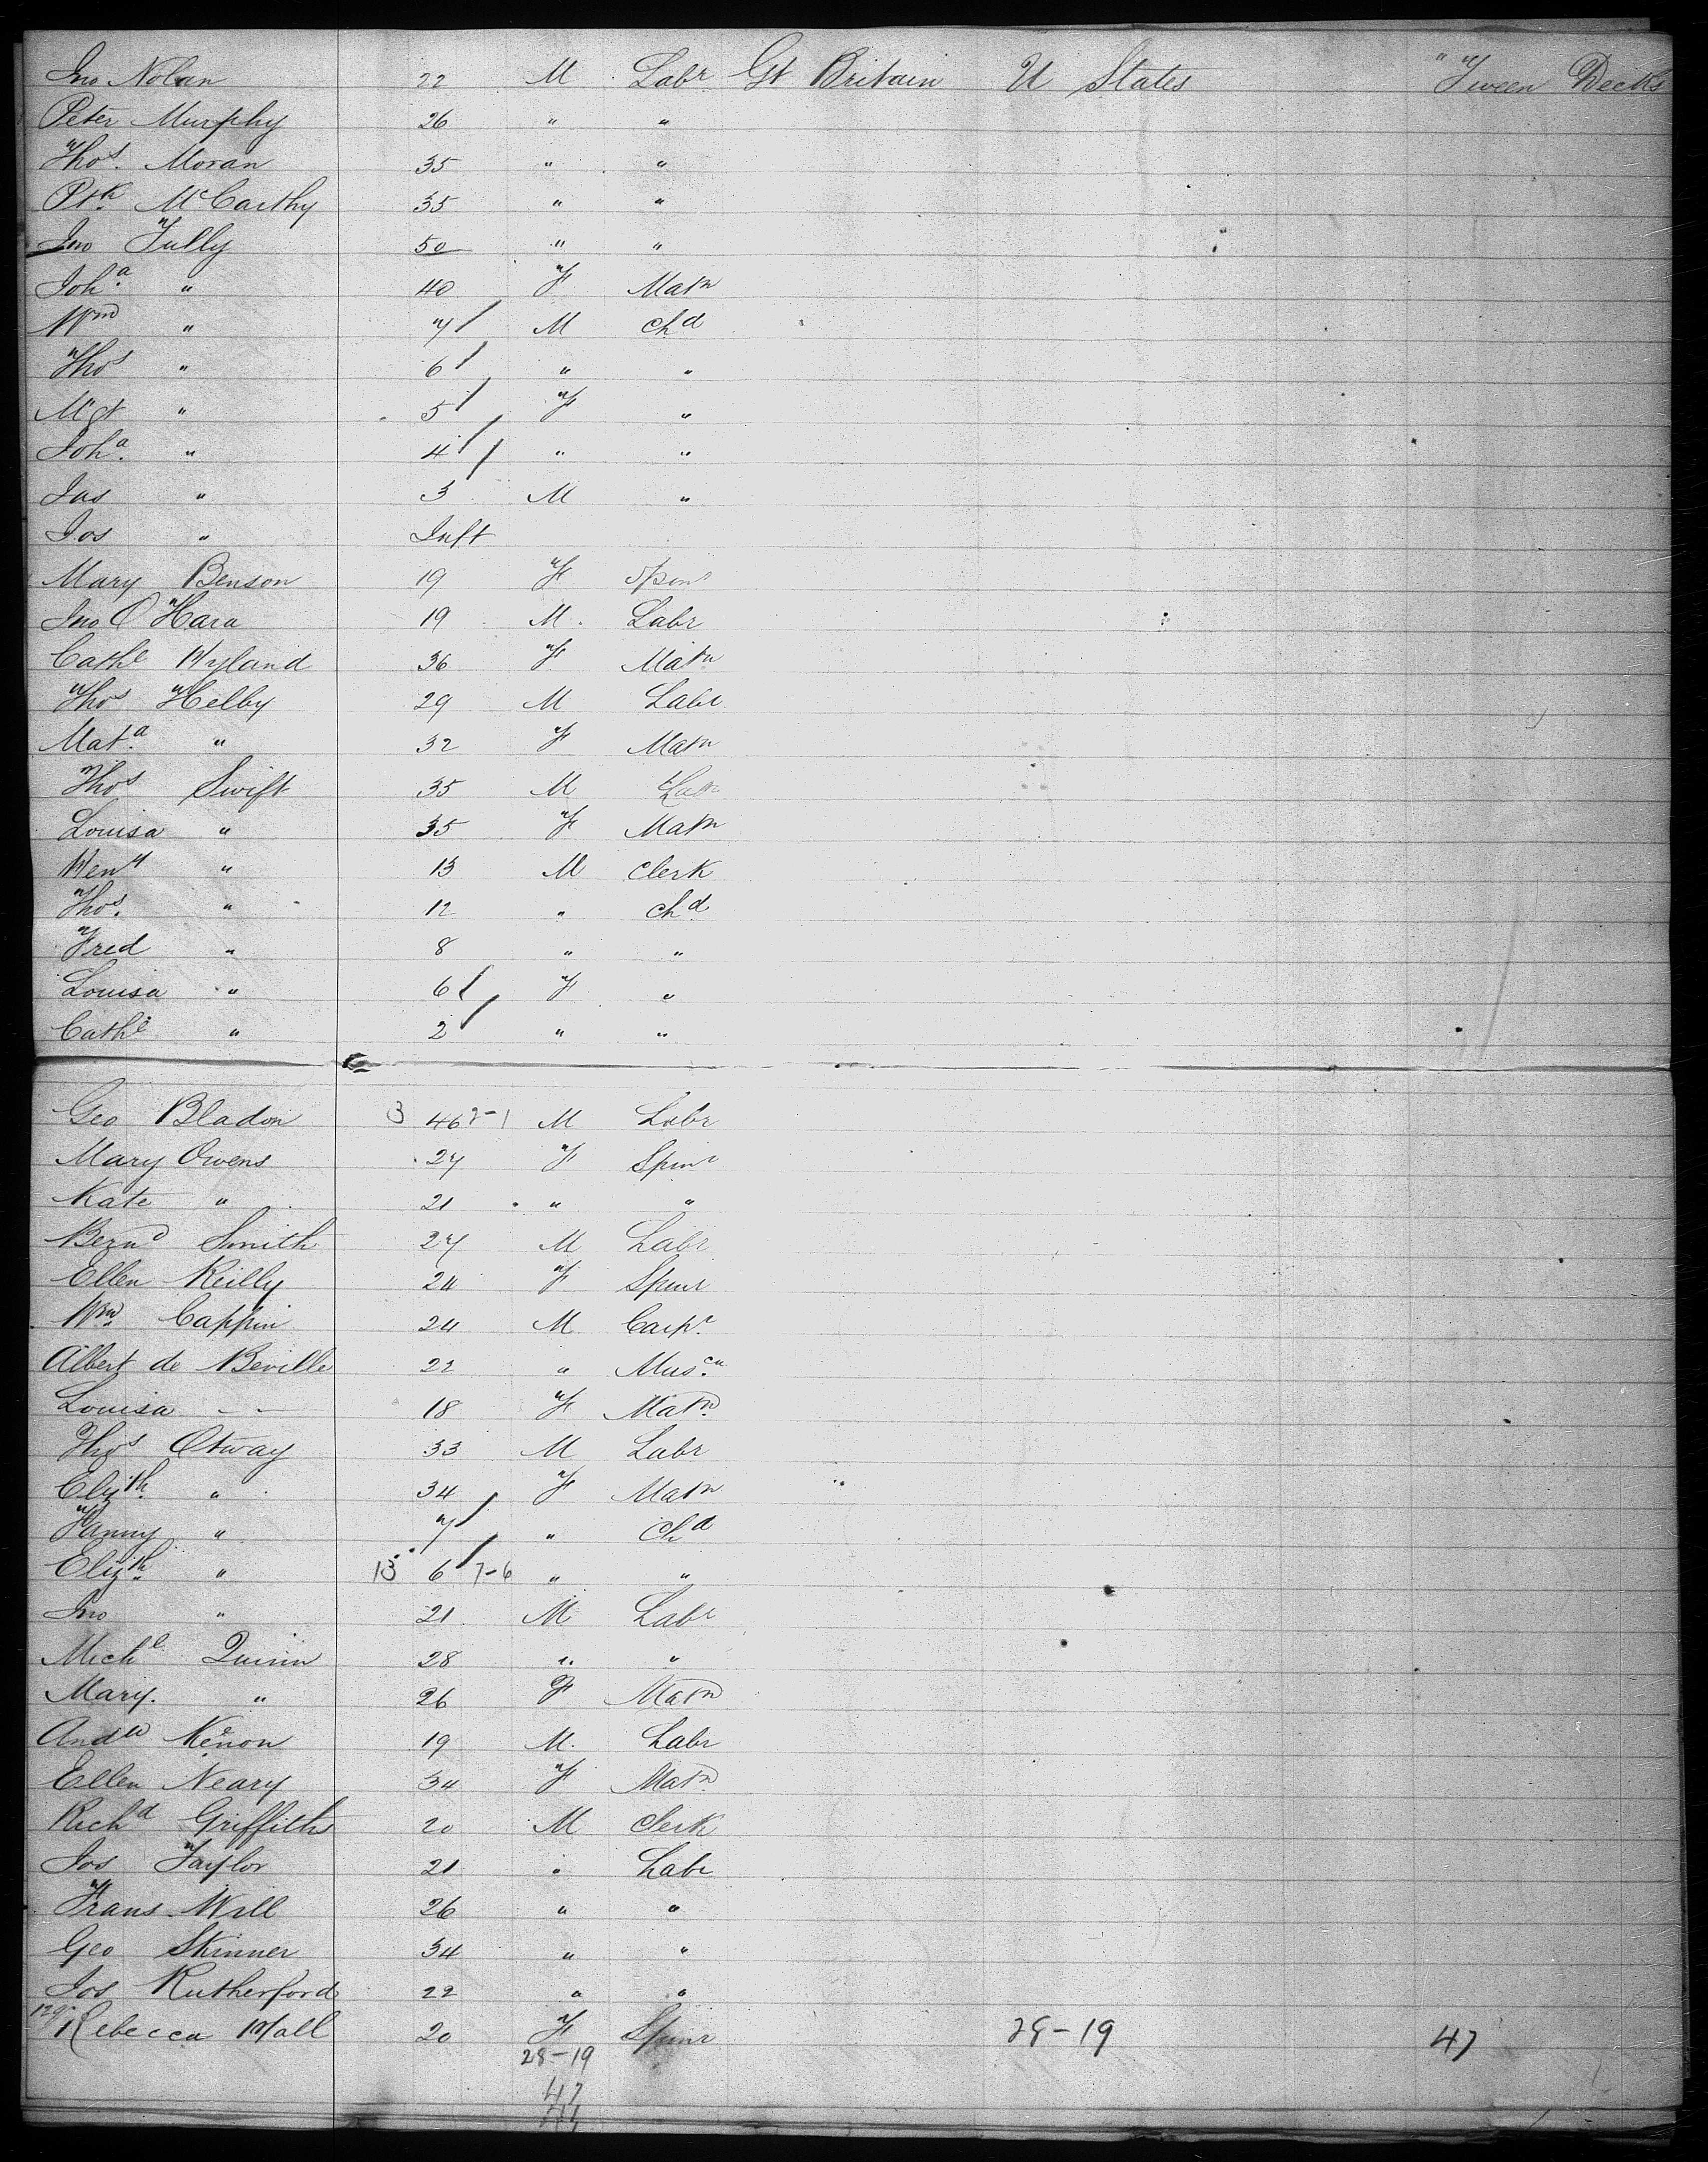 Jno Nolan 22 M Labr Gt Britain U States "Tween Decks
Peter Murphy 26 " "
Thos. Moran 35 " "
Ptk McCarthy 35 " "
Jno Tully 50 " "
Joha. " 40 F Matn
Wm " 7 M Chd
Thos " 6 " "
Mgt " 5 F "
Joha. " 4 " "
Jas " 3 M "
Jos " Inft
Mary Benson 19 F Spinr
Jno O'Hara 19 M. Labr
Cathe Wyland 36 F Matn
Thos Helby 29 M Labr
Mata. " 32 F Matn
Thos Swift 35 M
Louisa " 35 F Matn
Heny " 13 M Clerk
Thos. " 12 " Chd
Fred " 8 " "
Louisa " 6 F "
Cathe " 2 " "
Geo Bladon 3 46 2-1 M Labr
Mary Owens 27 F Spinr
Kate " 21 " "
Bernd Smith 27 M Labr
Ellen Reilly 24 F Spinr
Wm. Cappin 24 M Carpr.
Albert de Beville 22 " Muscn.
Louisa - - 18 F Matn
Thos Otway 33 M Labr
Elizth. " 34 F Matn
Fanny " 7 " Chd
Elizth. " 13 6 7-6 " "
Jno " 21 M Labr
Michl Quinn 28 " "
Mary. " 26 F Matn
Andw Kenon 19 M. Labr
Ellen Neary 34 F Matn
Richd Griffiths 20 M Clerk
Jos Taylor 21 " Labr
Frans Will 26 " "
Geo Skinner 34 " "
Jos Rutherford 22 " "
Rebecca Wall 20 F Spinr 28-19 47
28-19
47